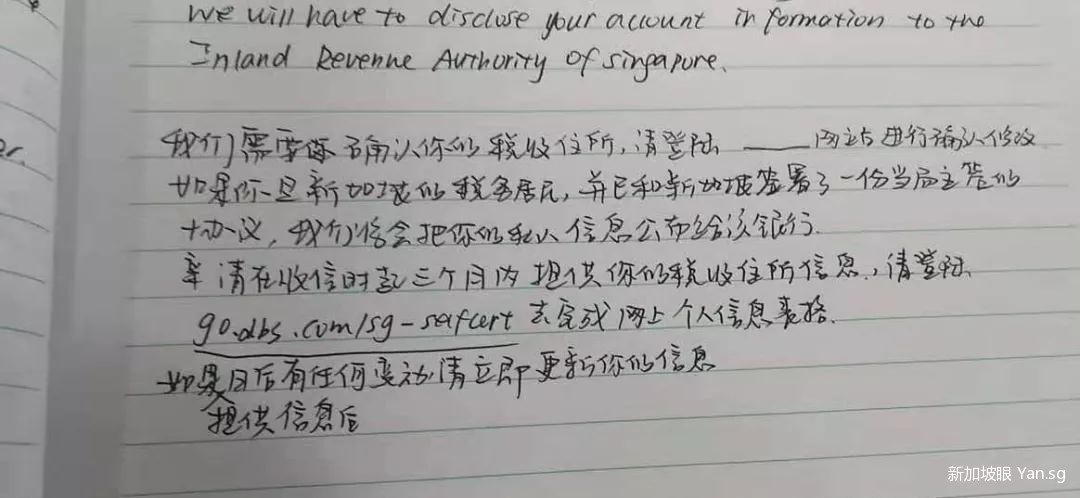 We will have to disclose your account information to the
Inland Revenue Authority Of singapore.
我们需要你确认你的税收住所,请登陆 ____ 网站进行确认修改
如果你是新加坡的税务居民,并已和新加坡签署了一份当局主管的
协议,我们将会把你的私人信息公布给该银行.
请在收信时起三个月内提供你的税收住所信息,请登陆
go.dbs.com/sg-selfcert 去完成网上个人信息表格.
如果日后有任何变动请立即更新你的信息
提供信息后
新加坡眼 Yan.sg